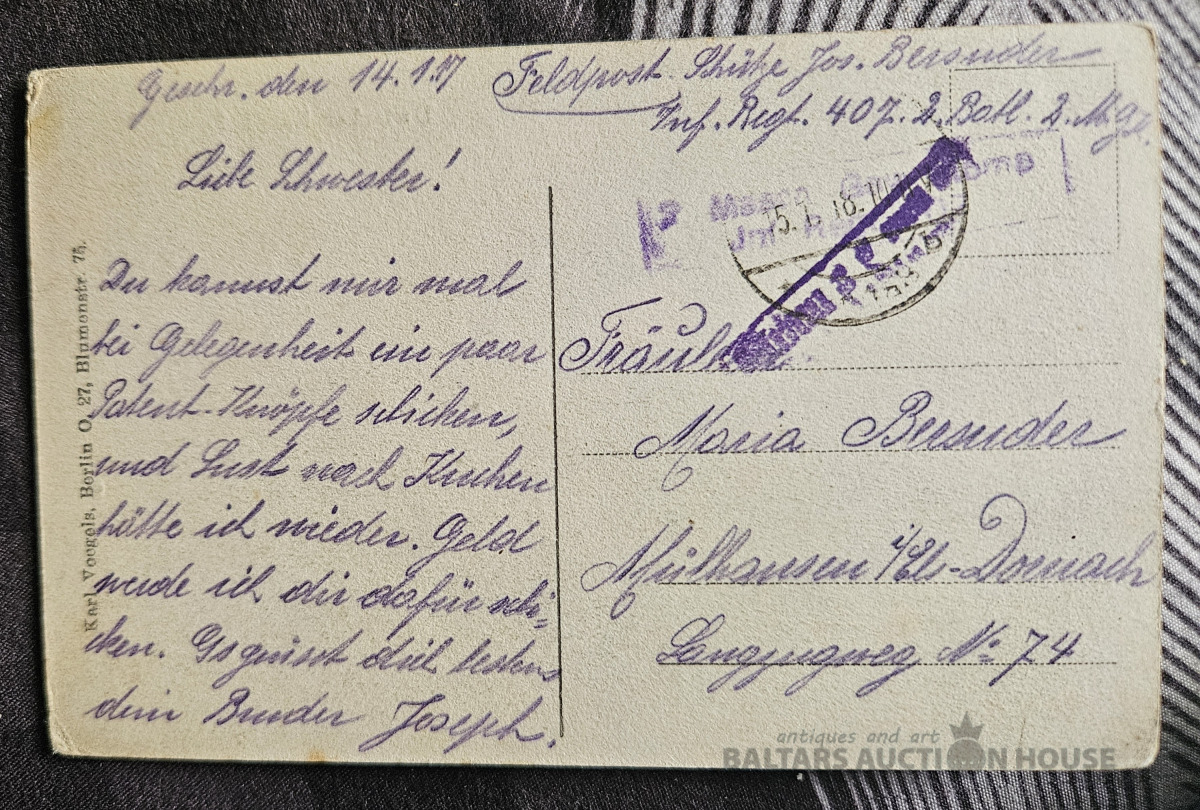 den 14.1.17
Feldpost Schütze Jos. Bersuder
Inf. Regt. 407. 2. Batl. 2. M.G.
Liebe Schwester!
Du kannst mir mal
bei Gelegenheit ein paar
Patent-Knöpfe schicken,
und Lust nach Kuchen
hätte ich wieder. Geld
werde ich dir dafür schi-
cken. Es grüsst dich bestens
dein Bruder Joseph.
Karl Voegels, Berlin O. 27, Blumenstr. 75.
15.1.18.
Maria Bersuder
Mülhausen i/Els-Dornach
No 74
antiques and art
BALTARS AUCTION HOUSE